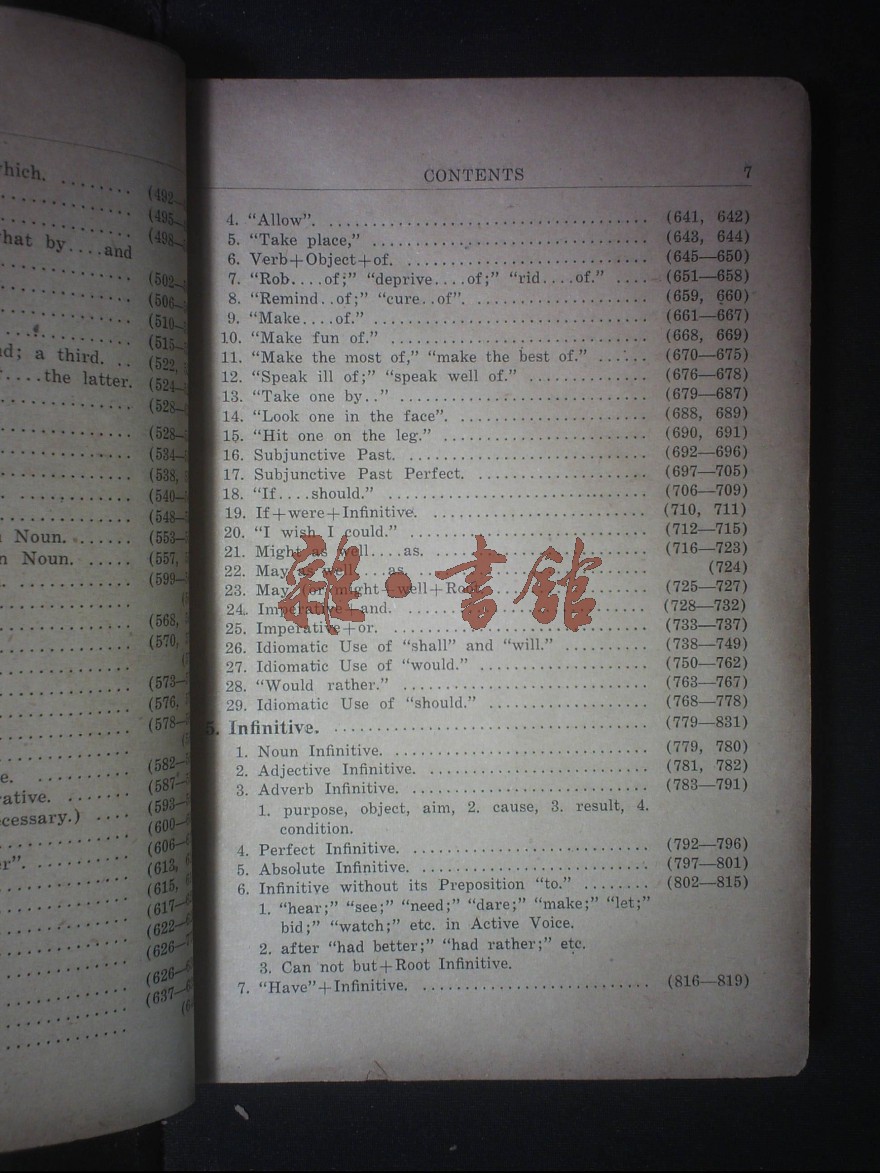 hich.
(492
(495
(498
hat by....and
(502
(506
(510
(515
d; a third.
(522,
....the latter.
(524
(528
(528
(534
(538,
(540
(548
Noun.
(553
n Noun.
(557,
(599
(568,
(570,
(573
(576,
(578
(582
e.
(587
ative.
(593
cessary.)
(600
(606
r”.
(613,
(615,
(617
(622
(626
(626
(637
CONTENTS 7
4. “Allow”. (641, 642)
5. “Take place,” (643, 644)
6. Verb+Object+of. (645—650)
7. “Rob....of;” “deprive....of;” “rid....of.” (651—658)
8. “Remind..of;” “cure..of”. (659, 660)
9. “Make....of.” (661—667)
10. “Make fun of.” (668, 669)
11. “Make the most of,” “make the best of.” (670—675)
12. “Speak ill of;” “speak well of.” (676—678)
13. “Take one by..” (679—687)
14. “Look one in the face”. (688, 689)
15. “Hit one on the leg.” (690, 691)
16. Subjunctive Past. (692—696)
17. Subjunctive Past Perfect. (697—705)
18. “If....should.” (706—709)
19. If+were+Infinitive. (710, 711)
20. “I wish I could.” (712—715)
21. Might as well....as. (716—723)
22. May as well....as. (724)
23. May (or might+well+Root. (725—727)
24. Imperative+and. (728—732)
25. Imperative+or. (733—737)
26. Idiomatic Use of “shall” and “will.” (738—749)
27. Idiomatic Use of “would.” (750—762)
28. “Would rather.” (763—767)
29. Idiomatic Use of “should.” (768—778)
5. Infinitive. (779—831)
1. Noun Infinitive. (779, 780)
2. Adjective Infinitive. (781, 782)
3. Adverb Infinitive. (783—791)
1. purpose, object, aim, 2. cause, 3. result, 4.
condition.
4. Perfect Infinitive. (792—796)
5. Absolute Infinitive. (797—801)
6. Infinitive without its Preposition “to.” (802—815)
1. “hear;” “see;” “need;” “dare;” “make;” “let;”
bid;” “watch;” etc. in Active Voice.
2. after “had better;” “had rather;” etc.
3. Can not but+Root Infinitive.
7. “Have”+Infinitive. (816—819)
雜·書館